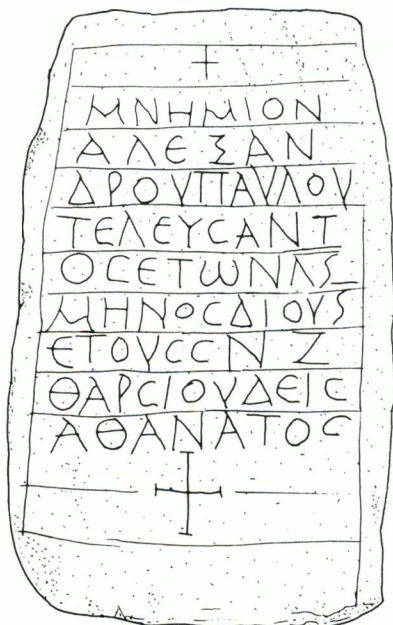 +
ΜΝΗΜΙΟΝ
ΑΛΕΞΑΝ
ΔΡΟΥΠΑΥΛΟΥ
ΤΕΛΕΥCΑΝΤ
ΟCΕΤΩΝΛϚ
ΜΗΝΟCΔΙΟΥϚ
ΕΤΟΥCCΝΖ
ΘΑΡCΙΟΥΔΕΙC
ΑΘΑΝΑΤΟC
+